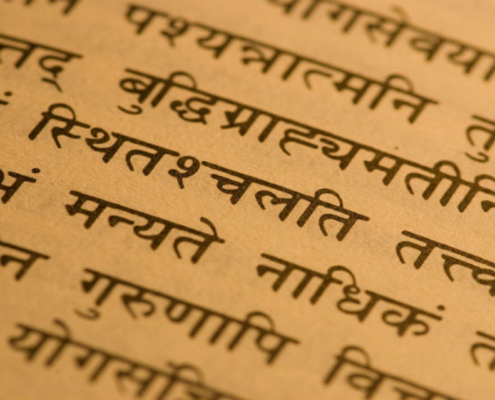 योगसेवया
पश्यन्नात्मनि तु
तद् बुद्धिग्राह्यमतीन्
स्थितश्चलति तत्त्व
भं मन्यते नाधिकं त
न गुरुणापि विच
योगसंज्ञि